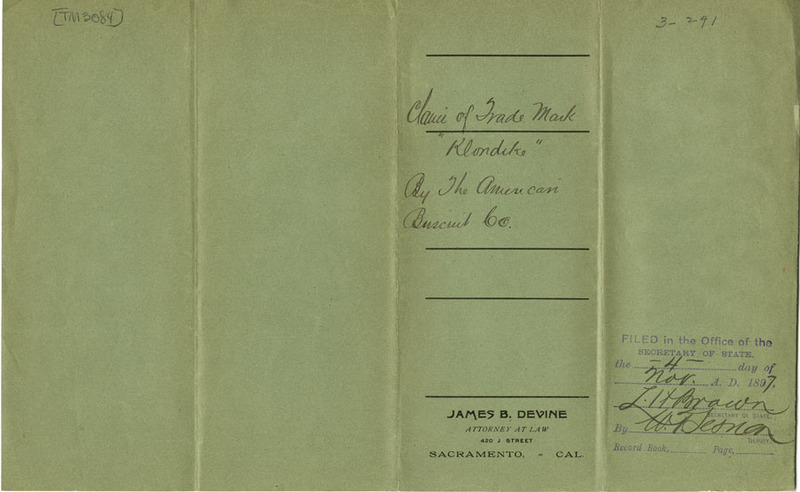 [TM3084]
3-291
Claim of Trade Mark
"Klondike"
By The American
Biscuit Co.
JAMES B. DEVINE
ATTORNEY AT LAW
420 J STREET
SACRAMENTO, - CAL.
FILED in the Office of the
SECRETARY OF STATE,
the -4- day of
Nov. A. D. 1897.
L. H. Brown
SECRETARY OF STATE
By W.
DEPUTY.
Record Book, Page,